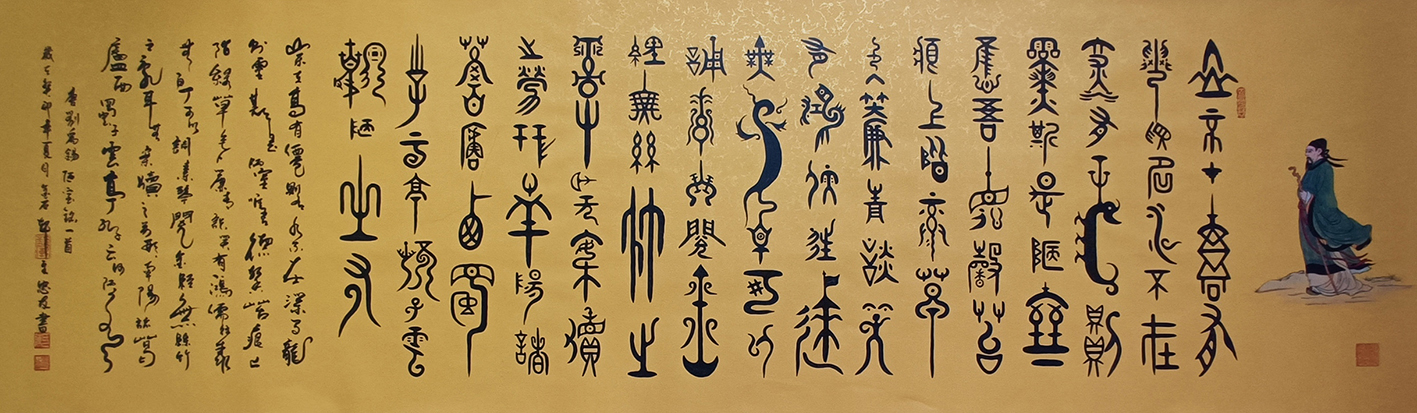 山不在高有
僊則名水不在
深有龍則
靈斯是陋室
惟吾德馨苔
痕上階綠草
色入簾青談笑
有鴻儒往來
無白丁可以
調素琴閱金
經無絲竹之
亂耳无案牘
之勞形南陽諸
葛廬西蜀
子云亭孔子雲
何陋之有
山不在高有僊則名水不在深有龍
則靈斯是陋室唯吾德馨苔痕上
階綠草色入簾青談笑有鴻儒往來
無白丁可以調素琴閱金經無絲竹
之亂耳無案牘之勞形南陽諸葛
廬西蜀子雲亭孔子云何陋之有
唐劉禹錫陋室銘一首
歲在癸卯年夏月 書